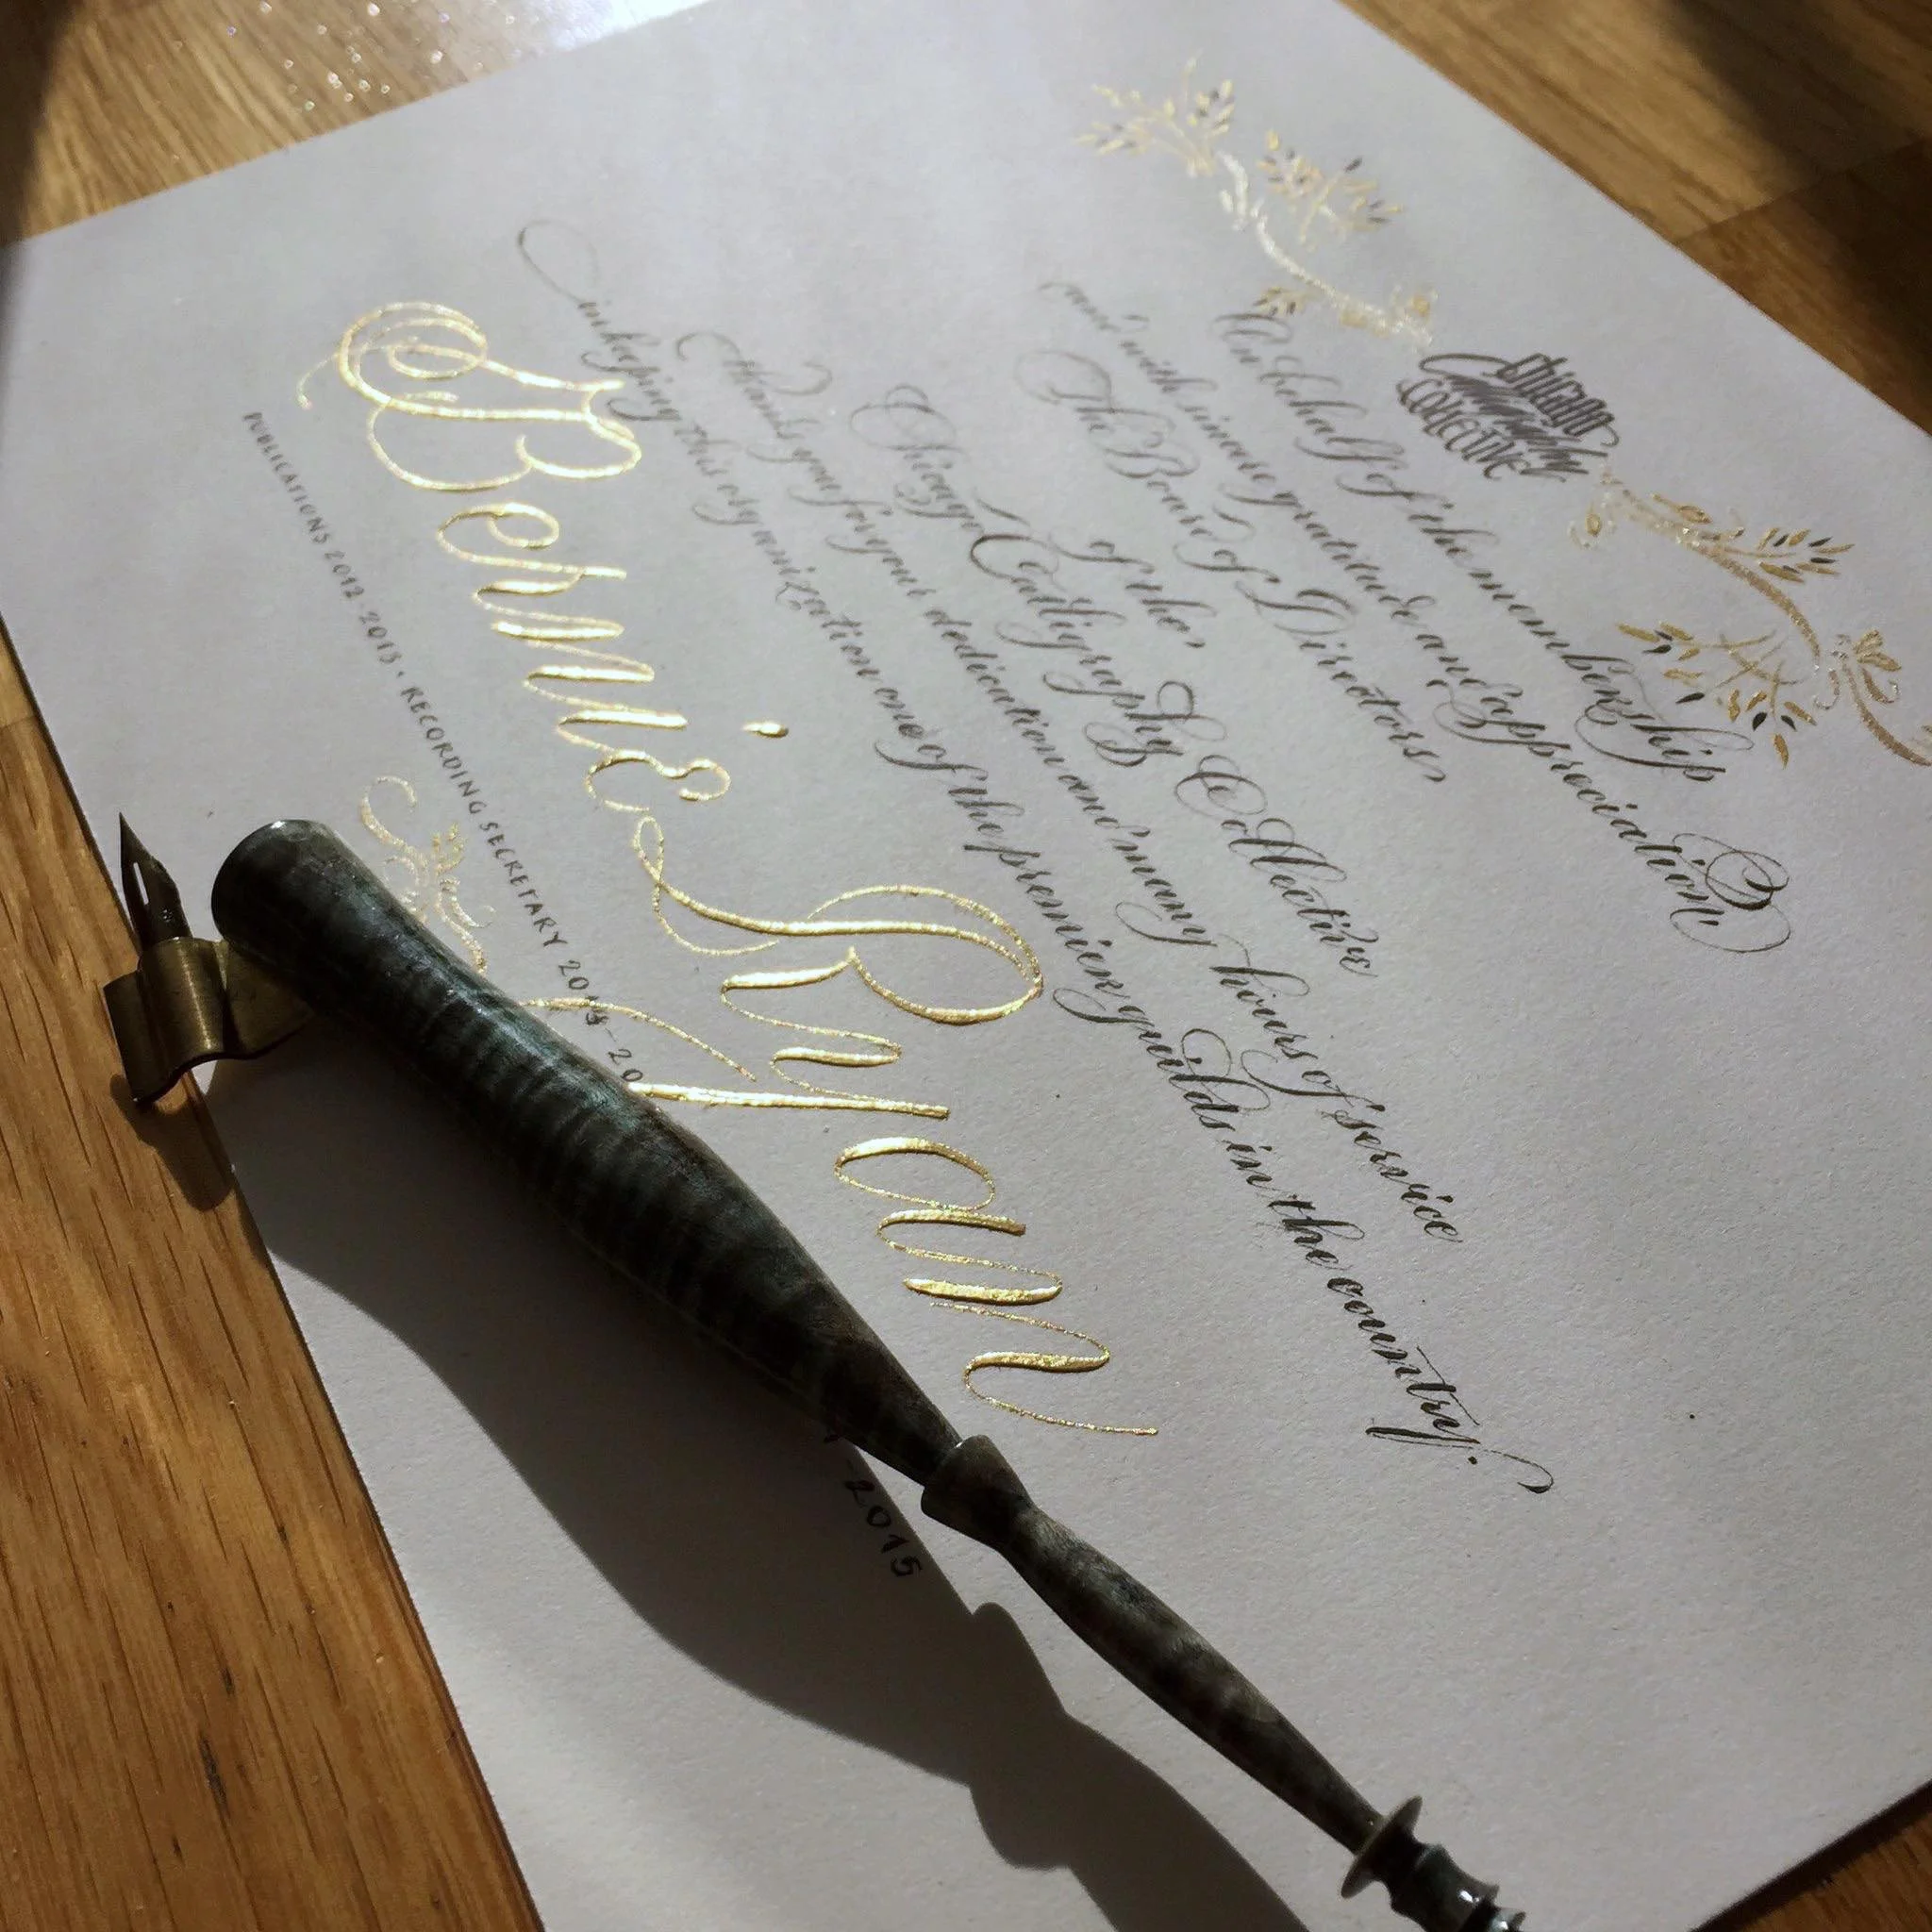 CHICAGO
Calligraphy
COLLECTIVE
On behalf of the membership
and with sincere gratitude and appreciation
The Board of Directors
of the
Chicago Calligraphy Collective
thanks you for your dedication and many hours of service
in keeping this organization one of the premier guilds in the country.
Bonnie Ryan
PUBLICATIONS 2012-2013 • RECORDING SECRETARY 20 -20 -2015